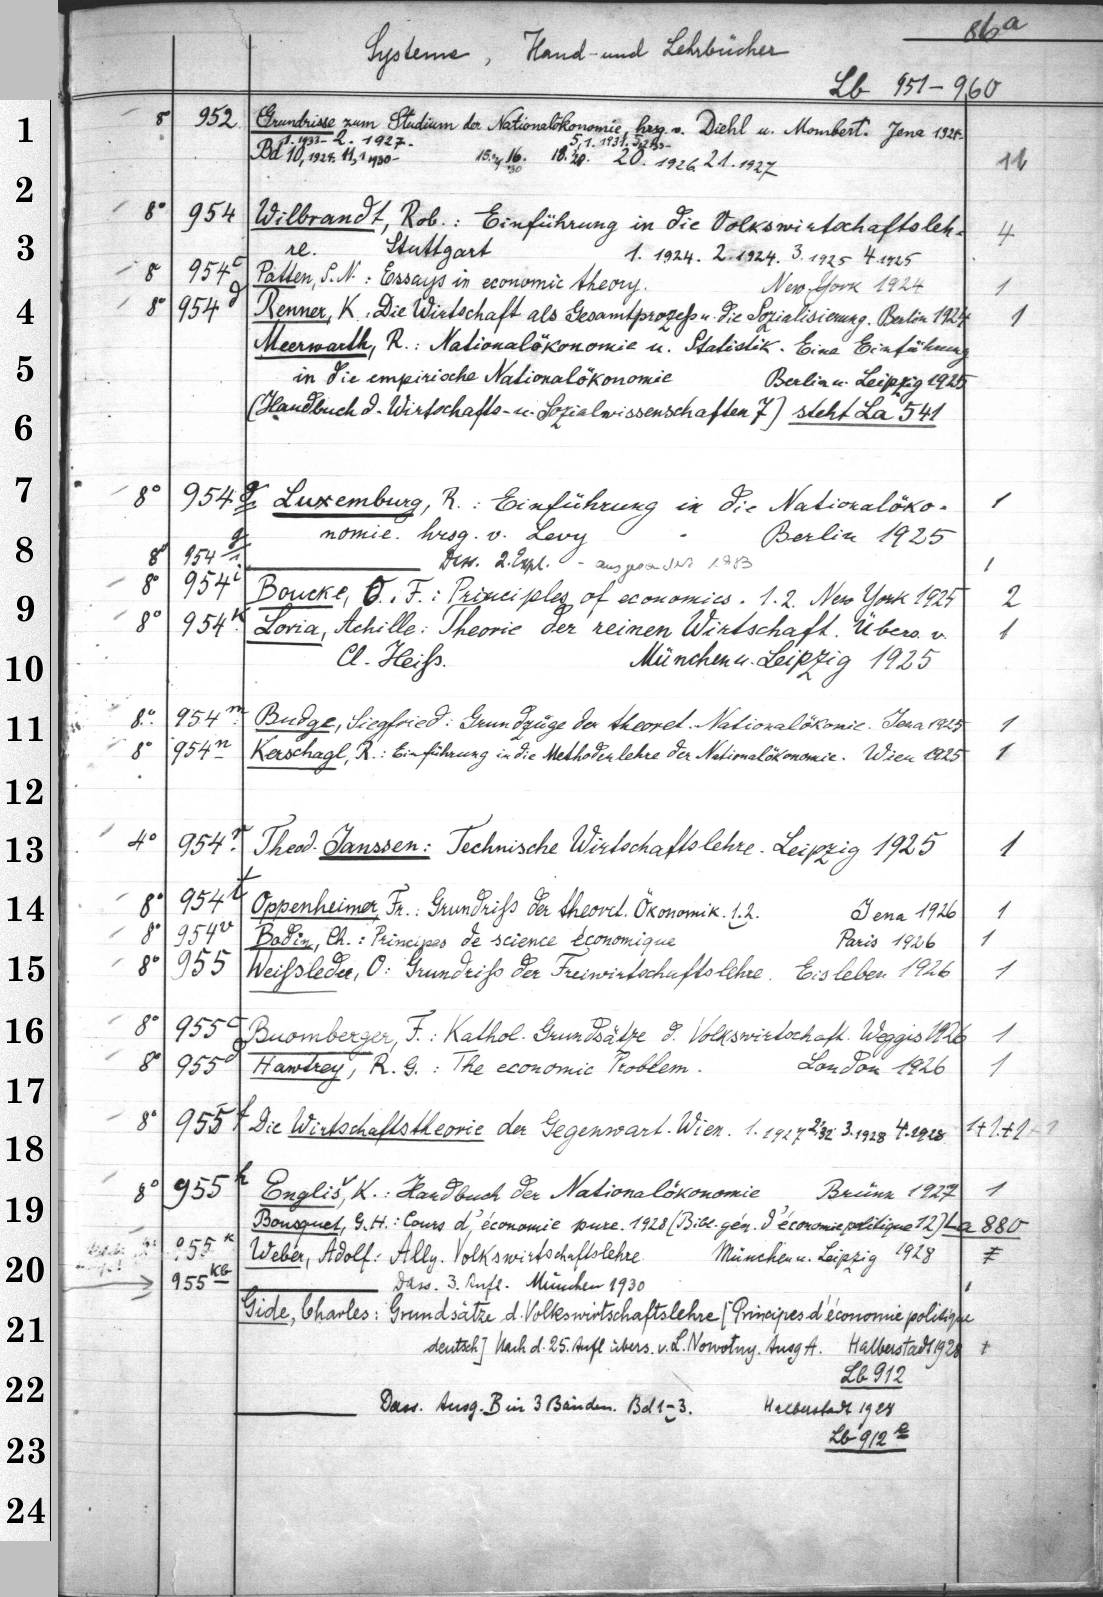 86a
Systeme, Hand- und Lehrbücher
Lb 951-960
1 8° 952 Grundrisse zum Studium der Nationalökonomie, hrsg. v. Diehl u. Mombert. Jena 1925-
1. 1933- 2. 1927. 5,1. 1931.
Bd 10, 1925. 11,1 1930- 15. 16. 18. 20. 1926. 21. 1927 11
2 8° 954 Wilbrandt, Rob.: Einführung in die Volkswirtschaftsleh- 4
3 re. Stuttgart 1. 1924. 2. 1924. 3. 1925 4. 1925
8° 954c Patten, S. N.: Essays in economic theory. New York 1924 1
4 8° 954d Renner, K. Die Wirtschaft als Gesamtprozeß u. die Sozialisierung. Berlin 1924 1
Meerwarth, R.: Nationalökonomie u. Statistik. Eine Einführung
5 in die empirische Nationalökonomie Berlin u. Leipzig 1925
6 (Handbuch d. Wirtschafts- u. Sozialwissenschaften 7) steht La 541
7 8° 954g Luxemburg, R.: Einführung in die Nationalöko- 1
nomie. hrsg. v. Levy Berlin 1925
8 8° 954g Dass. 2. Expl. 1
8° 954i Boucke, O. F.: Principles of economics. 1.2. New York 1925 2
9 8° 954k Loria, Achille: Theorie der reinen Wirtschaft. Übers. v. 1
10 Cl. Heiß. München u. Leipzig 1925
11 8° 954m Budge, Siegfried: Grundzüge der theoret. Nationalökomie. Jena 1925 1
8° 954n Kerschagl, R.: Einführung in die Methodenlehre der Nationalökonomie. Wien 1925 1
12
13 4° 954r Theod. Janssen: Technische Wirtschaftslehre. Leipzig 1925 1
14 8° 954t Oppenheimer, Fr.: Grundriß der theoret. Ökonomik. 1.2. Jena 1926 1
8° 954v Bodin, Ch.: Principes de science économique Paris 1926 1
15 8° 955 Weißleder, O: Grundriß der Freiwirtschaftslehre. Eisleben 1926 1
16 8° 955c Buomberger, F.: Kathol. Grundsätze d. Volkswirtschaft. Weggis 1926 1
8° 955d Hawtrey, R. G.: The economic Problem. London 1926 1
17
18 8° 955f Die Wirtschaftstheorie der Gegenwart. Wien. 1. 1927 2. 32 3. 1928 4. 1928 1+1+1+1
19 8° 955h Engliš, K.: Handbuch der Nationalökonomie Brünn 1927 1
Bousquet, G. H.: Cours d'économie pure. 1928 (Bibl. gén. d'économie politique 12) La 880
955k Weber, Adolf: Allg. Volkswirtschaftslehre München u. Leipzig 1928
20 955kb Dass. 3. Aufl. München 1930 1
21 Gide, Charles: Grundsätze d. Volkswirtschaftslehre [Principes d'économie politique
deutsch] Nach d. 25. Aufl übers. v. L. Nowotny. Ausg A. Halberstadt 1928
22 Lb 912
Dass. Ausg. B in 3 Bänden. Bd 1-3. Halberstadt 1928
23 Lb 912e
24